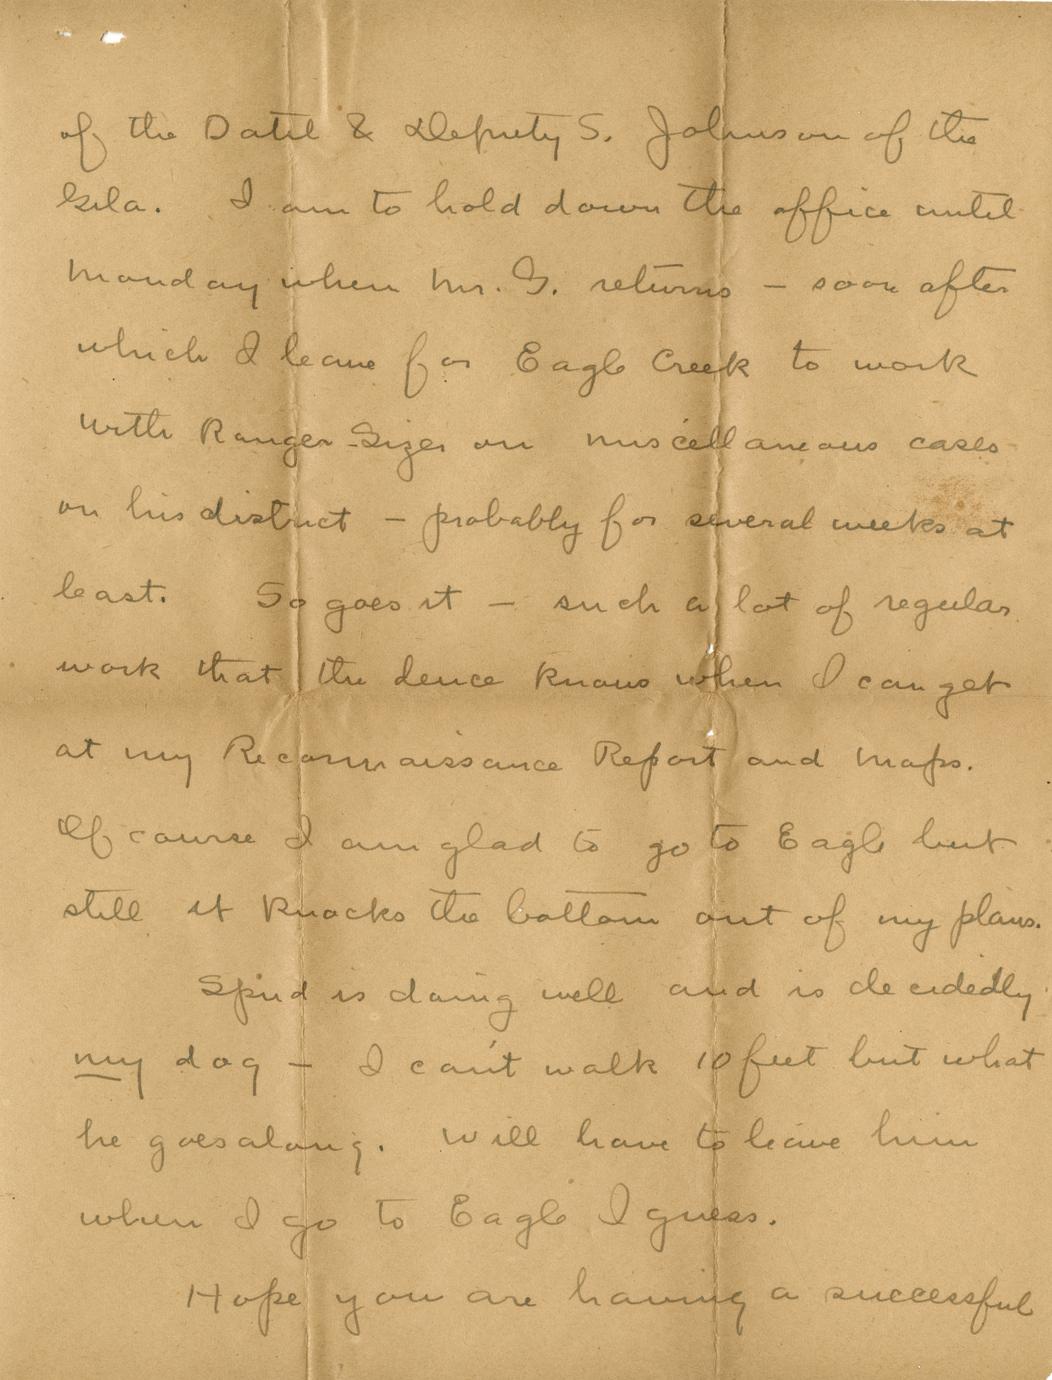 of the Datil & Deputy S. Johnson of the
Gila. I am to hold down the office until
Monday when Mr. G. returns – soon after
which I leave for Eagle Creek to work
with Ranger Sizer on miscellaneous cases
on his district – probably for several weeks at
least. So goes it – such a lot of regular
work that the deuce knows when I can get
at my Reconnaissance Report and Maps.
Of course I am glad to go to Eagle but
still it knocks the bottom out of my plans.
Spud is doing well and is decidedly
my dog – I can't walk 10 feet but what
he goes along. Will have to leave him
when I go to Eagle I guess.
Hope you are having a successful